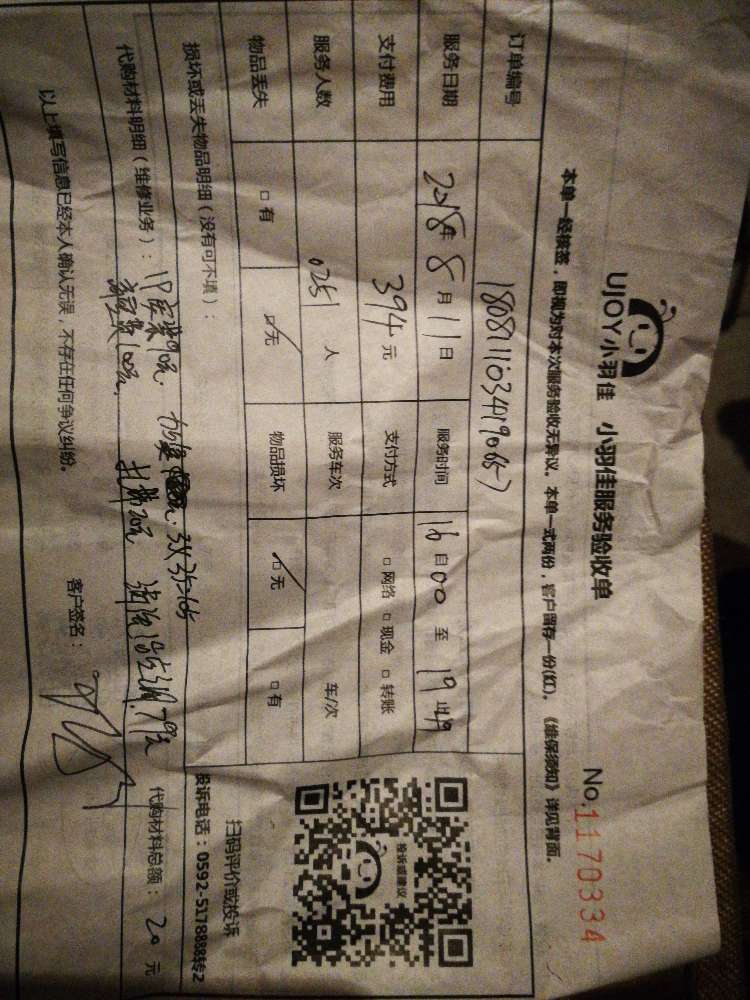 UJOY小羽佳 小羽佳服务验收单
No.1170334
本单一经核签，即视为对本次服务验收无异议。本单一式两份，客户留存一份(红)。《维保须知》详见背面。
订单编号
服务日期 2018年 8月 11日 服务时间 16自00 至 19
支付费用 394元 支付方式 □网络 □现金 □转账
服务人数 0251 人 服务车次 车/次
物品丢失 □有 □无 物品损坏 □无 □有
损坏或丢失物品明细（没有可不填）：
代购材料明细（维修业务）： 3X35=105
100元 代购材料总额：20元
以上填写信息已经本人确认无误，不存在任何争议纠纷。 客户签名：
投诉或建议
扫码评价或投诉
投诉电话：0592-5178888转2